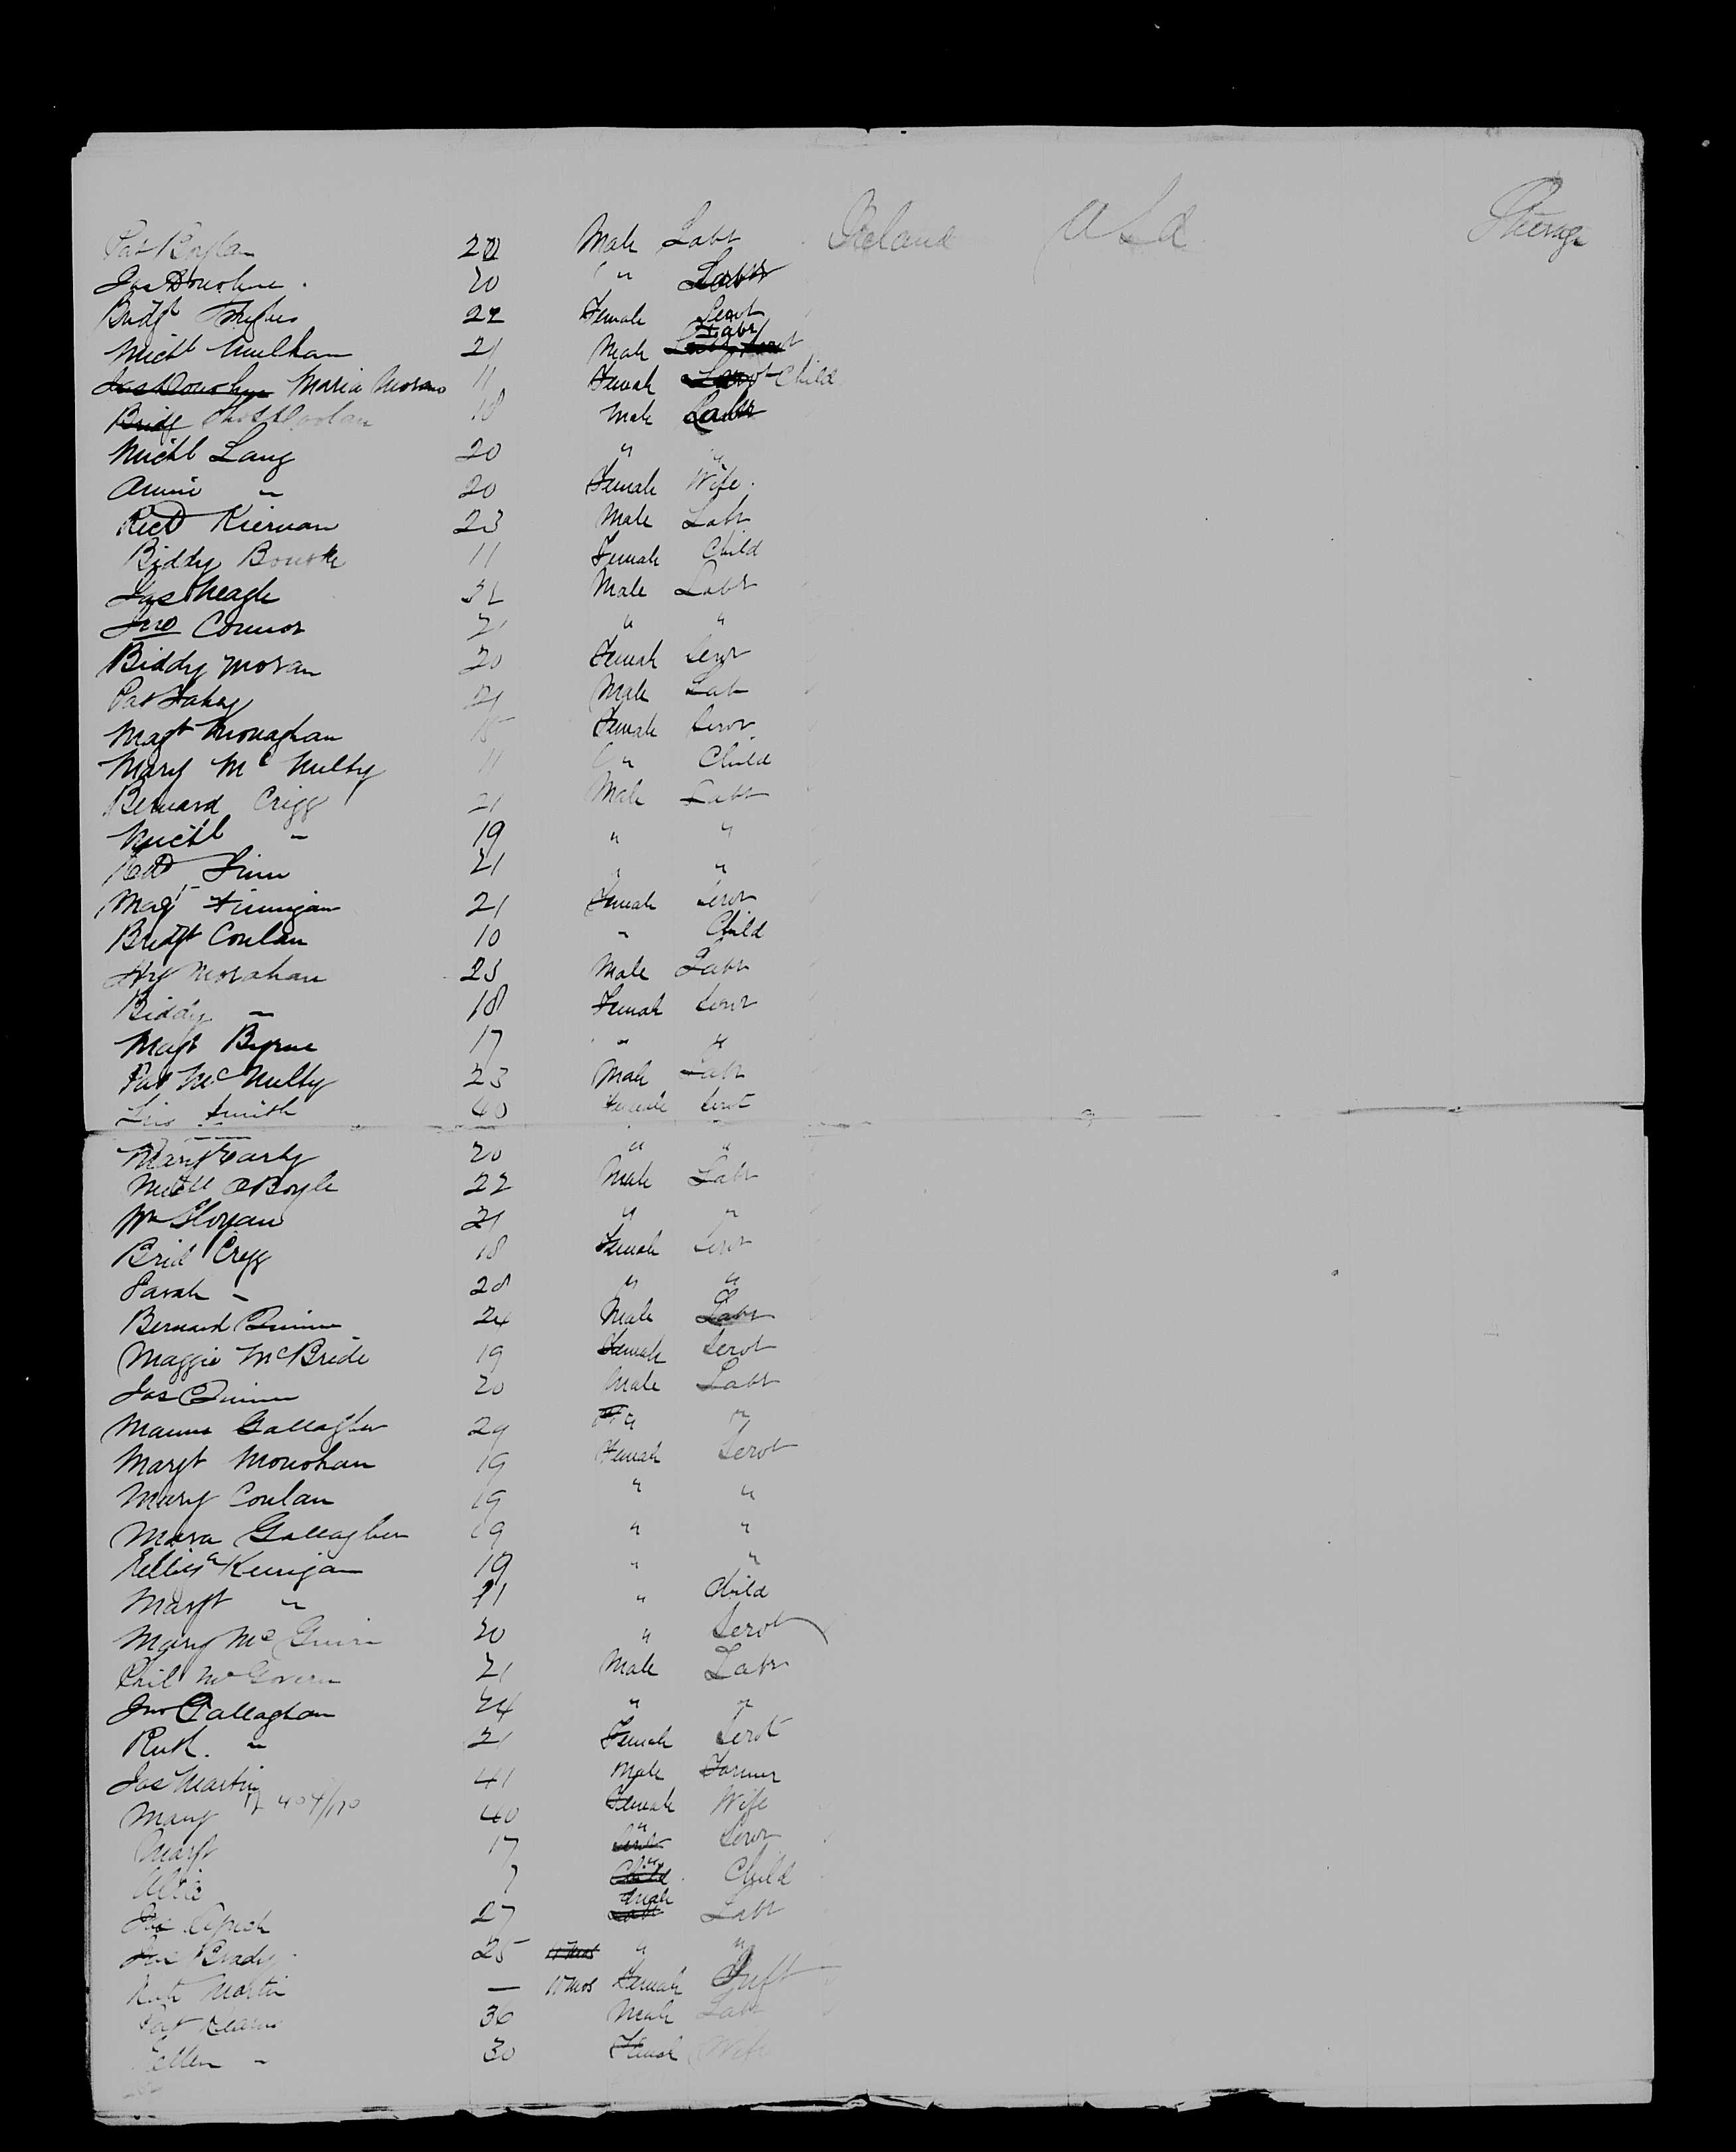 Pat Boylan 20 Male Labr Ireland USA Steerage
Jas Donohue 20 " Labr
Bridgt Hughes 22 Female Servt
Michl Mulhan 21 Male Labr
Jas Donohue Maria Moran 11 Female Child
Bridgt Thos Doolan 18 Male Labr
Michl Lang 20 " "
Annie " 20 Female Wife
Richd Kiernan 23 Male Labr
Biddy Bourke 11 Female Child
Jas Neagle 32 Male Labr
Jno Connor 21 " "
Biddy Moran 20 Female Servt
Pat Fahey 21 Male Labr
Magt Monaghan 18 Female Servt
Mary McNulty 11 " Child
Bernard Cregg 21 Male Labr
Michl " 19 " "
Finn 21 " "
Magt Finnigan 21 Female Servt
Bridgt Conlan 10 " Child
Hy Morahan 23 Male Labr
Biddy " 18 Female Servt
Magt Byrne 17 " "
Pat McNulty 23 Male Labr
Smith 40 Female Servt
Mary Early 20 " "
Michl OBoyle 22 Male Labr
Wm Gloyan 21 " "
Brid Cregg 18 Female Servt
Sarah " 20 " "
Bernard Quinn 24 Male Labr
Maggie McBride 19 Female Servt
Jas Quinn 20 Male Labr
Manus Gallagher 29 " "
Margt Monohan 19 Female Servt
Mary Conlan 19 " "
Mara Gallagher 19 " "
Kerrigan 19 " "
Margt " 11 " Child
Mary McGuire 20 " Servt
Phil McGovern 21 Male Labr
Jno Callaghan 24 " "
Ruth " 21 Female Servt
Jas Martin 41 Male Farmer
Mary 404/170 40 Female Wife
Margt 17 " Servt
7 " Child
Lynch 27 Male Labr
Brady 25 " "
Martin — 10 mos Female Inft
Pat Kearns 30 Male Labr
Ellen " 30 Female Wife